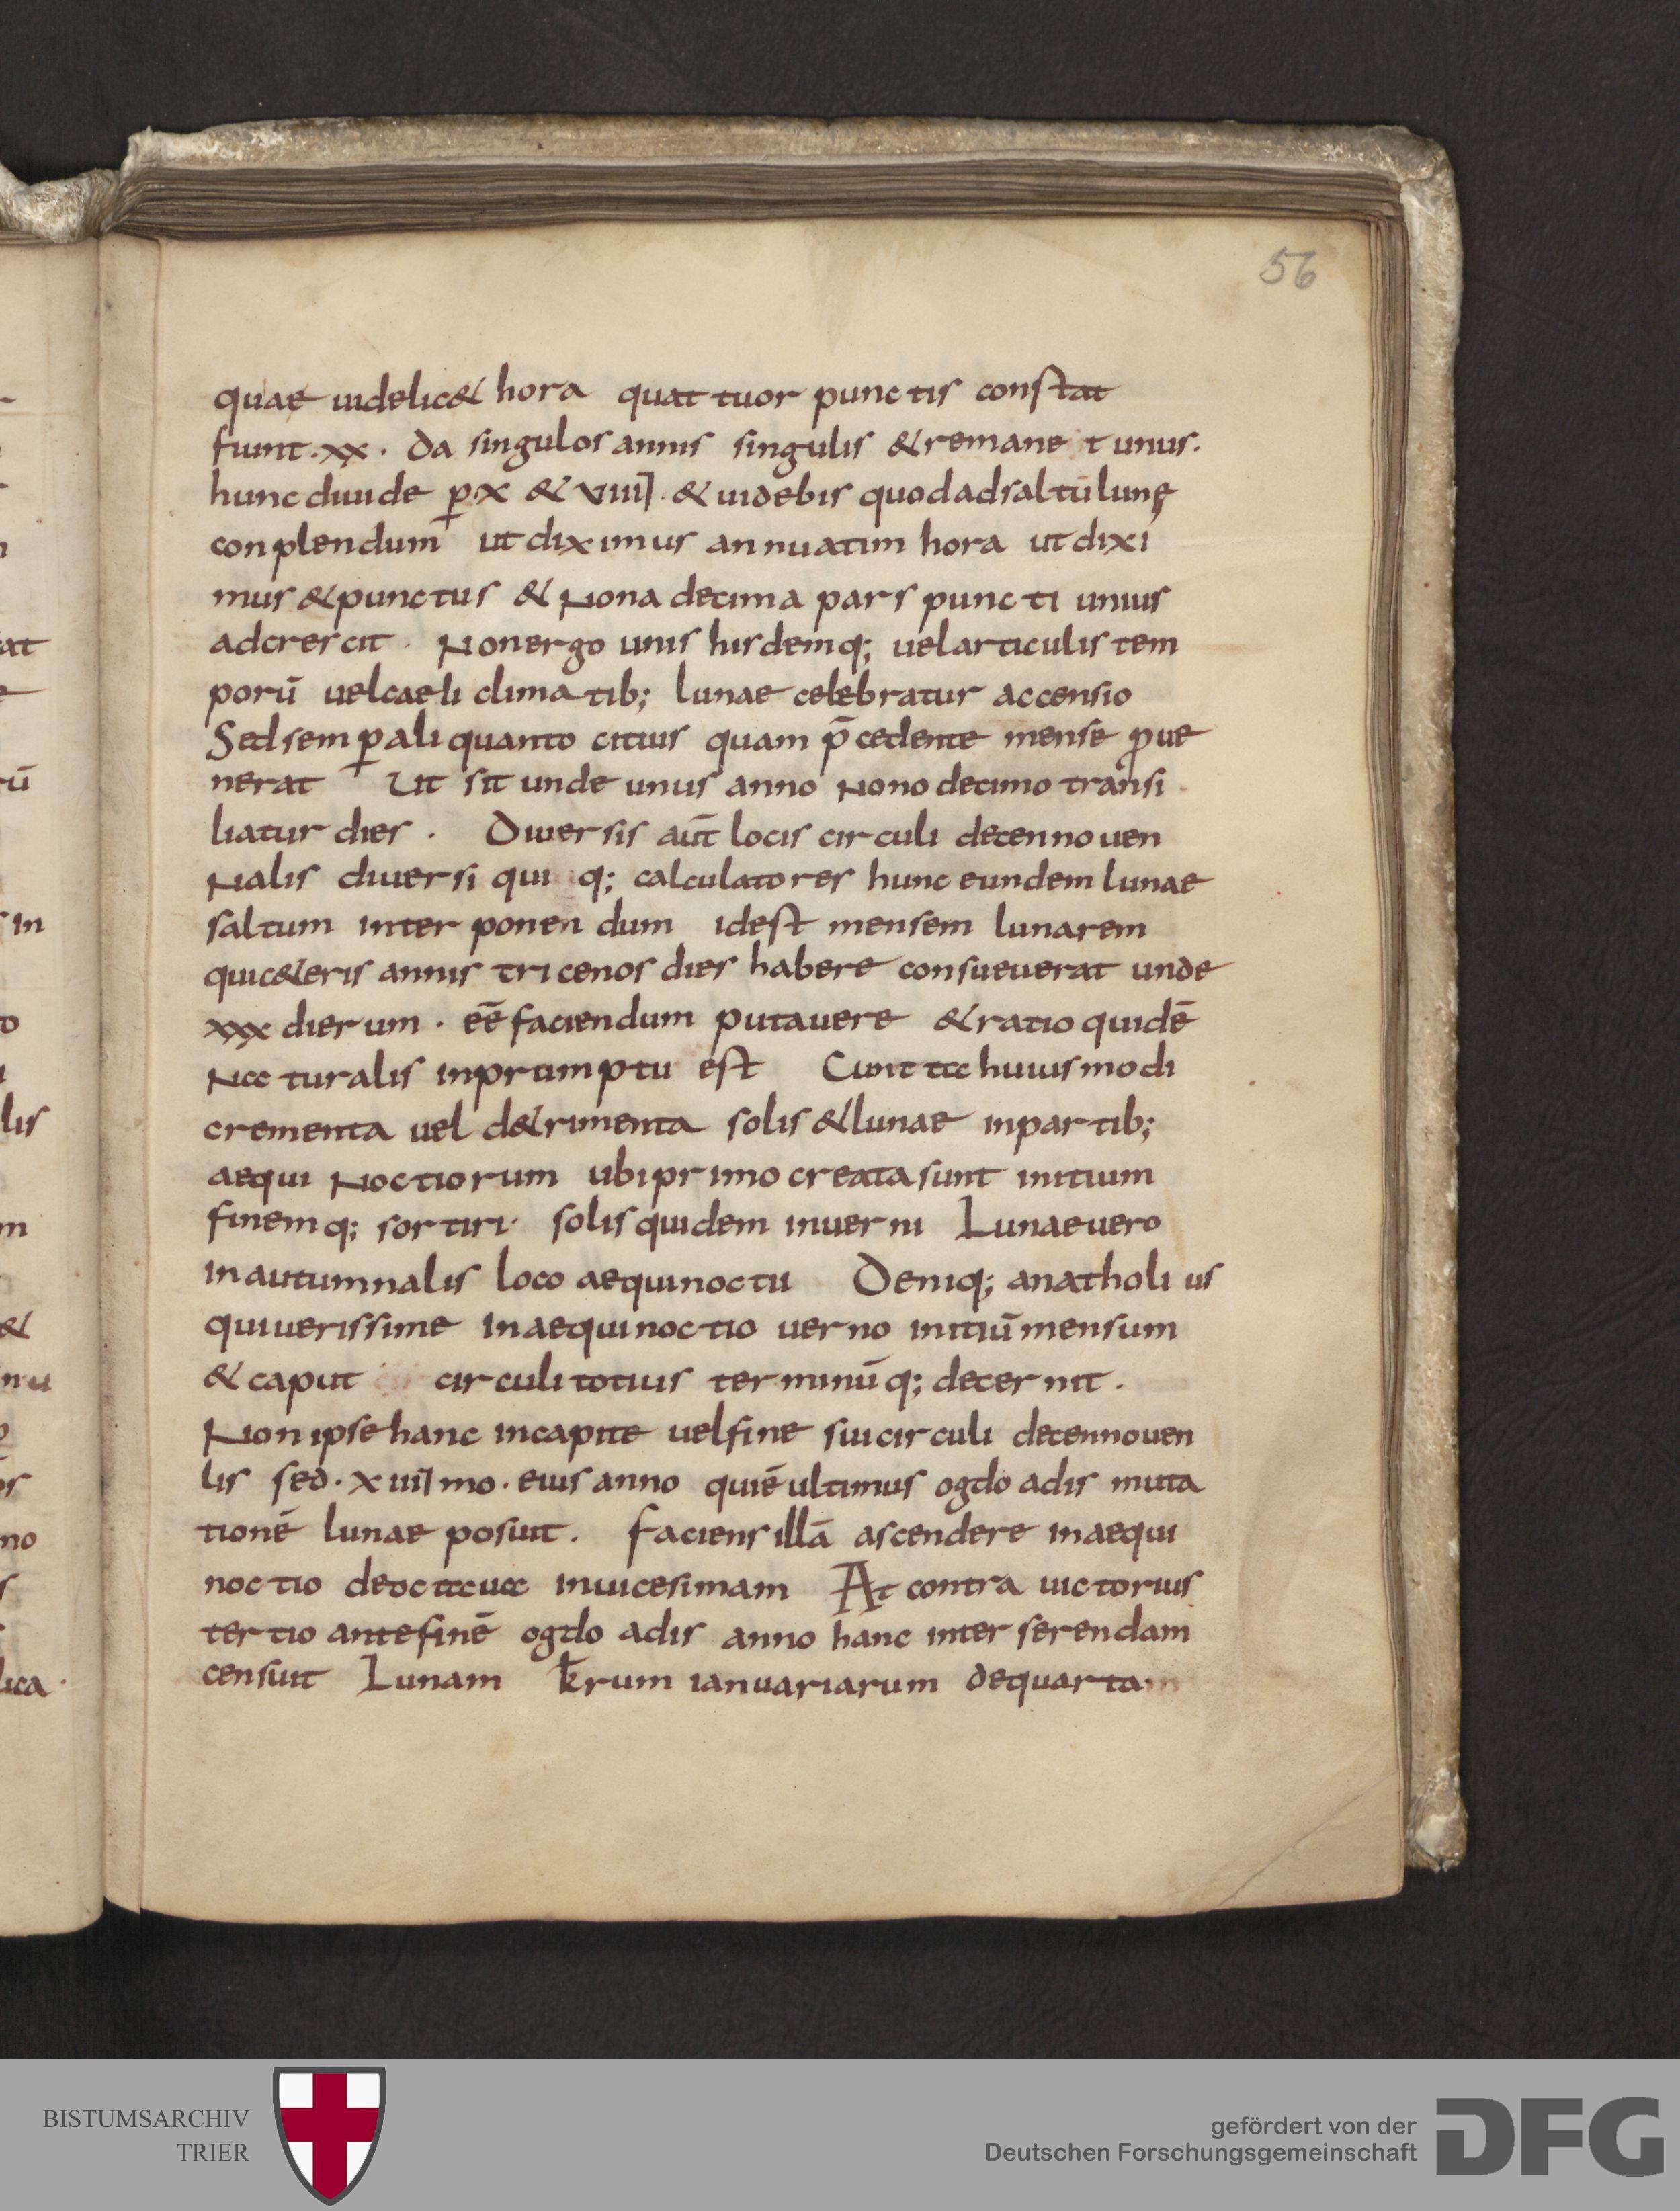 56
quae uidelic& hora quattuor punctis constat
fiunt·xx· da singulos annis singulis &remane t unus·
hunc diuide p̱ x & viiii· & uidebis quodadsaltūlunę
conplendum ut diximus annuatim hora ut dixi
mus &punctus & Nona decima pars puncti unius
adcrescit · Nonergo unis hisdemq; uelarticulis tem
porū uelcaeli climatib; lunae celebratur accensio
Sedsemp̱ aliquanto citius quam p̄cedente mense ꝓue
nerat Ut sit unde unus anno Nono decimo transi
liatur dies · Diuersis aūt locis circuli decennouen
Nalis diuersi qui q; calculatores hunc eundem lunae
saltum interponendum idest mensem lunarem
quic&eris annis tricenos dies habere consueuerat unde
xxx dierum · eē faciendum putauere &ratio quidē
Naturalis inprumptu est Cuncta huiusmodi
crementa uel d&rimenta solis &lunae inpartib;
aequi Noctiorum ubiprimo creata sunt initium
finemq; sortiri· solis quidem inuerni Lunaeuero
inautumnalis loco aequinoctii Deniq; anatholius
quiuerissime inaequinoctio uerno initiūmensum
&caput circuli totius terminūq; decernit ·
Non ipse hanc incapite uelfine sui circuli decennouen
lis sed· xiiiimo· eius anno quiē ultimus ogdoadis muta
tionē lunae posuit · faciens illā ascendere inaequi
noctio deoctaua inuicesimam At contra uictorius
tertio antefinē ogdoadis anno hanc inter serendam
censuit Lunam k̄rum ianuariarum dequartam
at
rū
in
lis
m
&
no
lica·
BISTUMSARCHIV
TRIER
gefördert von der
Deutschen Forschungsgemeinschaft
DFG